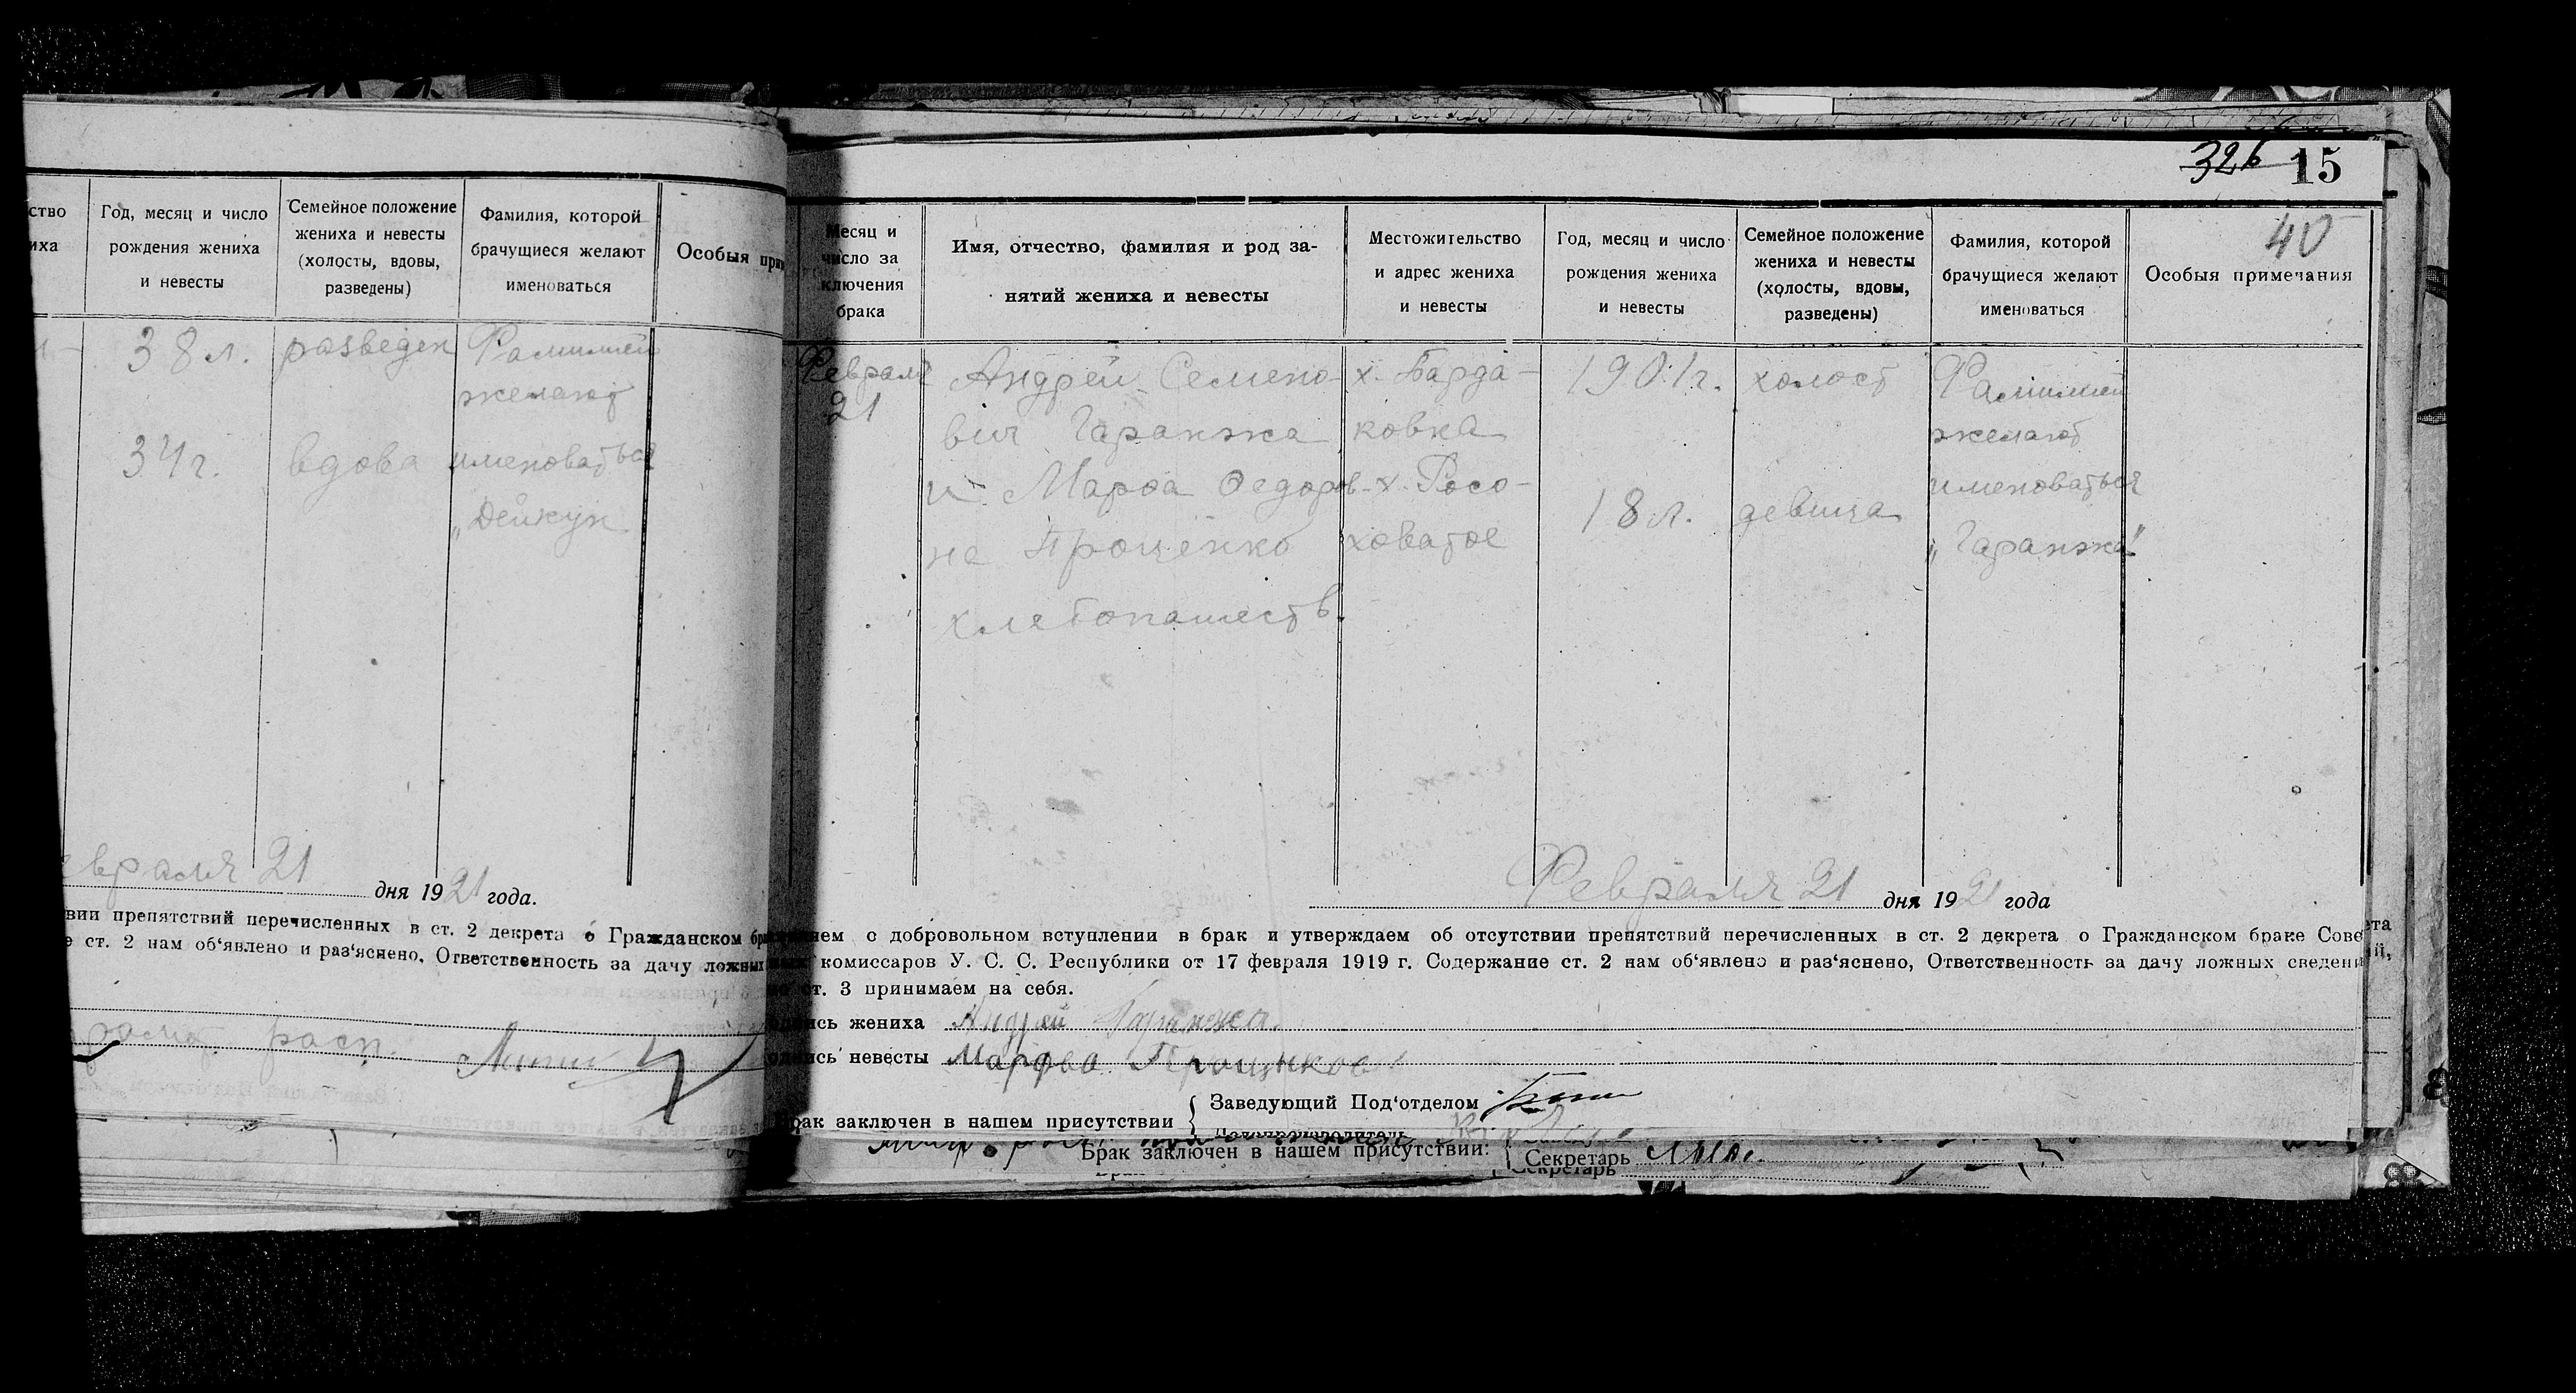 ство
иха
Год, месяц и число
рождения жениха
и невесты
Семейное положение
жениха и невесты
(холосты, вдовы,
разведены)
Фамилия, которой
брачущиеся желают
именоваться
Особыя при
38 л.
разведен
Фамилией
желают
34 г.
вдова
именоваться
„Дейкун
евраля 21 дня 1921 года.
вии препятствий перечисленных в ст. 2 декрета о Гражданском бра
е ст. 2 нам об‘явлено и раз‘яснено, Ответственность за дачу ложных
расп.
326 15
40
Месяц и
число за
ключения
брака
Имя, отчество, фамилия и род за-
нятий жениха и невесты
Местожительство
и адрес жениха
и невесты
Год, месяц и число
рождения жениха
и невесты
Семейное положение
жениха и невесты
(холосты, вдовы,
разведены)
Фамилия, которой
брачущиеся желают
именоваться
Особыя примечания
Февраля
21
Андрей Семено-
вич Гаранжа
и Марѳа Ѳедоров-
на Проценко
хлебопашеств.
х. Барда-
ковка
х. Росо-
ховатое
1901 г.
18 л.
холост
девица
Фамилией
желают
именоваться
„Гаранжа“
Февраля 21 дня 1921 года
нем о добровольном вступлении в брак и утверждаем об отсутствии препятствий перечисленных в ст. 2 декрета о Гражданском браке Сове
комиссаров У. С. С. Республики от 17 февраля 1919 г. Содержание ст. 2 нам об‘явлено и раз‘яснено, Ответственность за дачу ложных сведени
ст. 3 принимаем на себя.
одпись жениха Андрей Гаранжа
одпись невесты Марфа
Брак заключен в нашем присутствии
Заведующий Под‘отделом
Делопроизводитель
Брак заключен в нашем присутствии:
Секретарь
Секретарь